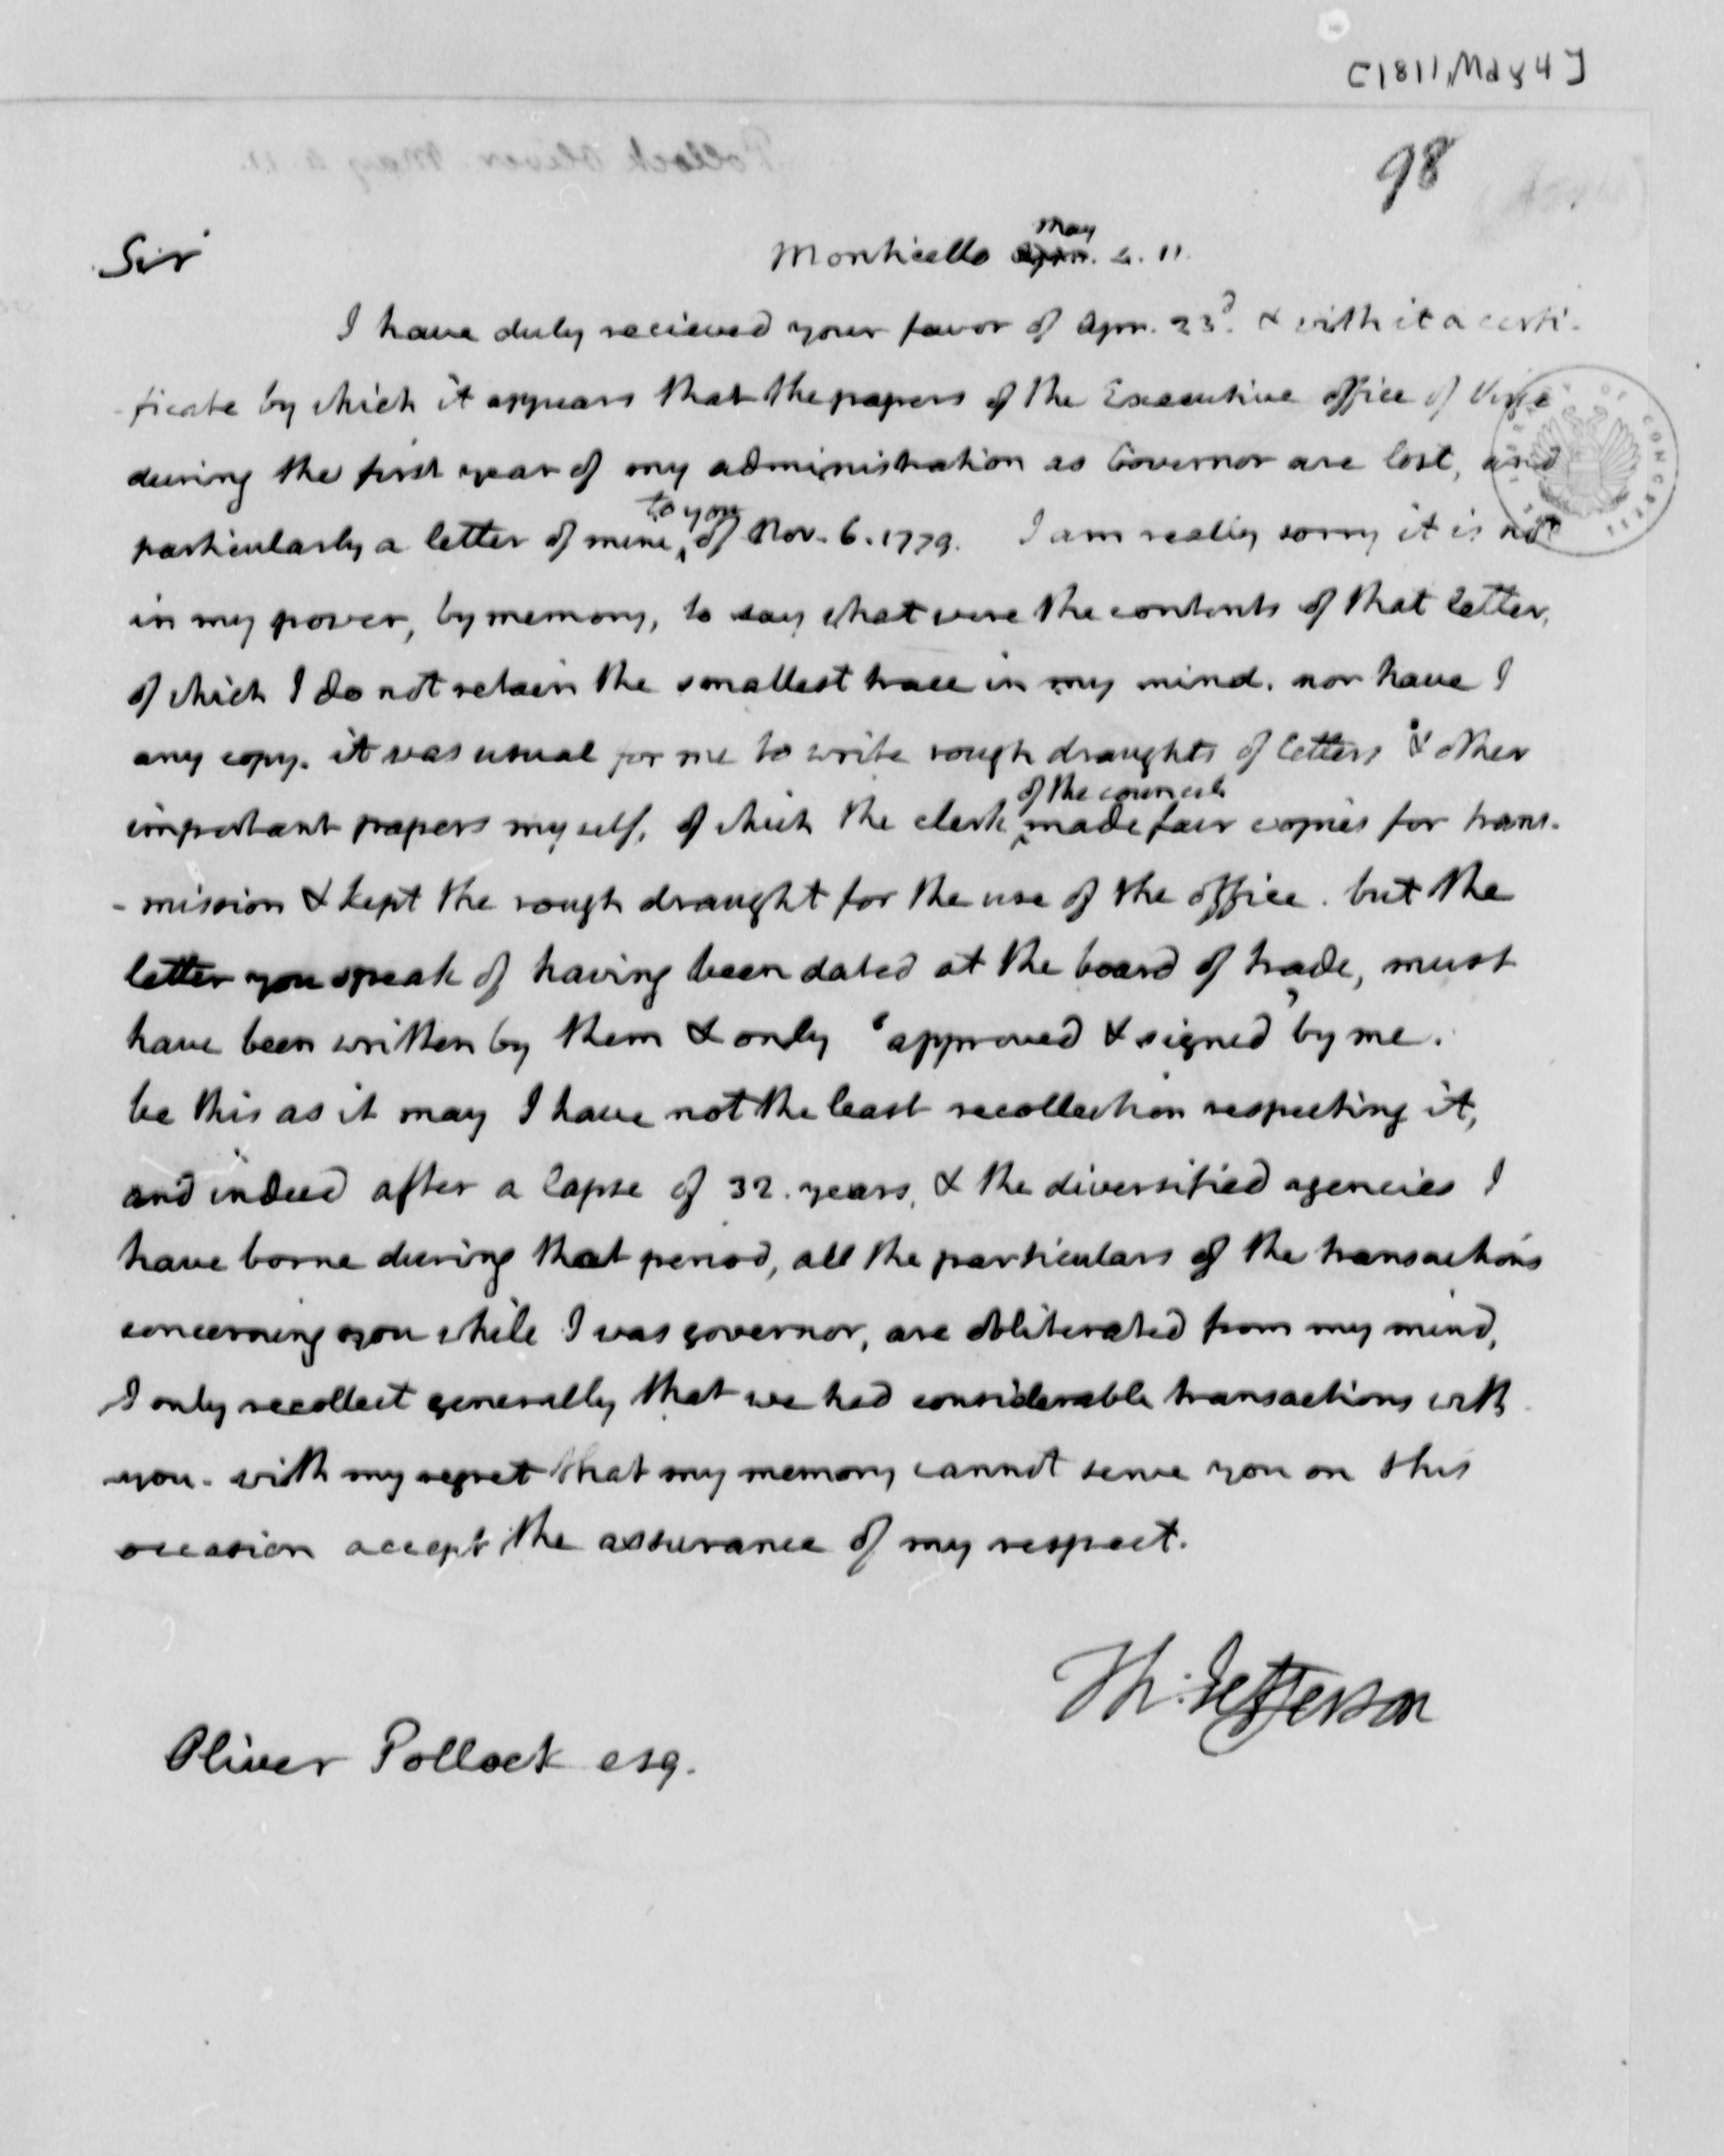 [1811, May 4]
98
Pollock Oliver. May 4. 11.
Sir
Monticello May
Apr. 4. 11.
I have duly recieved your favor of Apr. 23d. & with it a certi-
-ficate by which it appears that the papers of the Executive office of Virga
during the first year of my administration as Governor are lost, and
to you
particularly a letter of mine, of Nov. 6. 1779. I am really sorry it is not
in my power, by memory, to say what were the contents of that letter,
of which I do not retain the smallest trace in my mind. nor have I
any copy. it was usual for me to write rough draughts of letters & other
of the council
important papers myself, of which the clerk made fair copies for trans-
-mission & kept the rough draught for the use of the office. but the
letter you speak of having been dated at the board of trade, must
have been written by them & only 'approved & signed' by me.
be this as it may I have not the least recollection respecting it,
and indeed after a lapse of 32. years, & the diversified agencies I
have borne during that period, all the particulars of the transactions
concerning you while I was governor, are obliterated from my mind,
I only recollect generally that we had considerable transactions with
you. with my regret that my memory cannot serve you on this
occasion accept the assurance of my respect.
Th: Jefferson
Oliver Pollock esq.